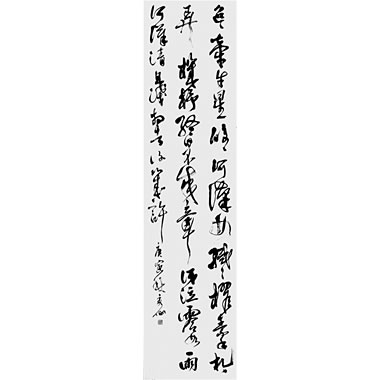 迢迢牽牛星皎皎河漢女纖纖擢素手札札
弄機杼終日不成章涕泣零如雨
河漢清且淺相去復幾許庚寅秋